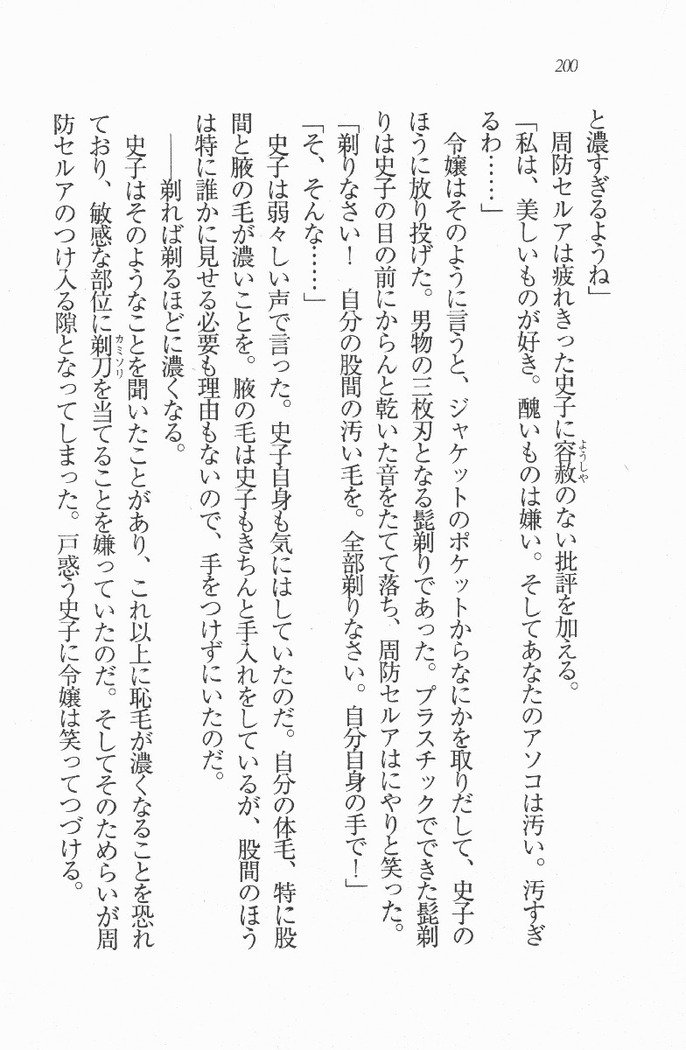 200
と濃すぎるようね」
周防セルアは疲れきった史子に容赦のない批評を加える。
ようしゃ
「私は、美しいものが好き。醜いものは嫌い。そしてあなたのアソコは汚い。汚すぎ
るわ……」
令嬢はそのように言うと、ジャケットのポケットからなにかを取りだして、史子の
ほうに放り投げた。男物の三枚刃となる髭剃りであった。プラスチックでできた髭剃
りは史子の目の前にからんと乾いた音をたてて落ち、周防セルアはにやりと笑った。
「剃りなさい！　自分の股間の汚い毛を。全部剃りなさい。自分自身の手で！」
「そ、そんな……」
史子は弱々しい声で言った。史子自身も気にはしていたのだ。自分の体毛、特に股
間と腋の毛が濃いことを。腋の毛は史子もきちんと手入れをしているが、股間のほう
は特に誰かに見せる必要も理由もないので、手をつけずにいたのだ。
――剃れば剃るほどに濃くなる。
史子はそのようなことを聞いたことがあり、これ以上に恥毛が濃くなることを恐れ
ており、敏感な部位に剃刀を当てることを嫌っていたのだ。そしてそのためらいが周
カミソリ
防セルアのつけ入る隙となってしまった。戸惑う史子に令嬢は笑ってつづける。